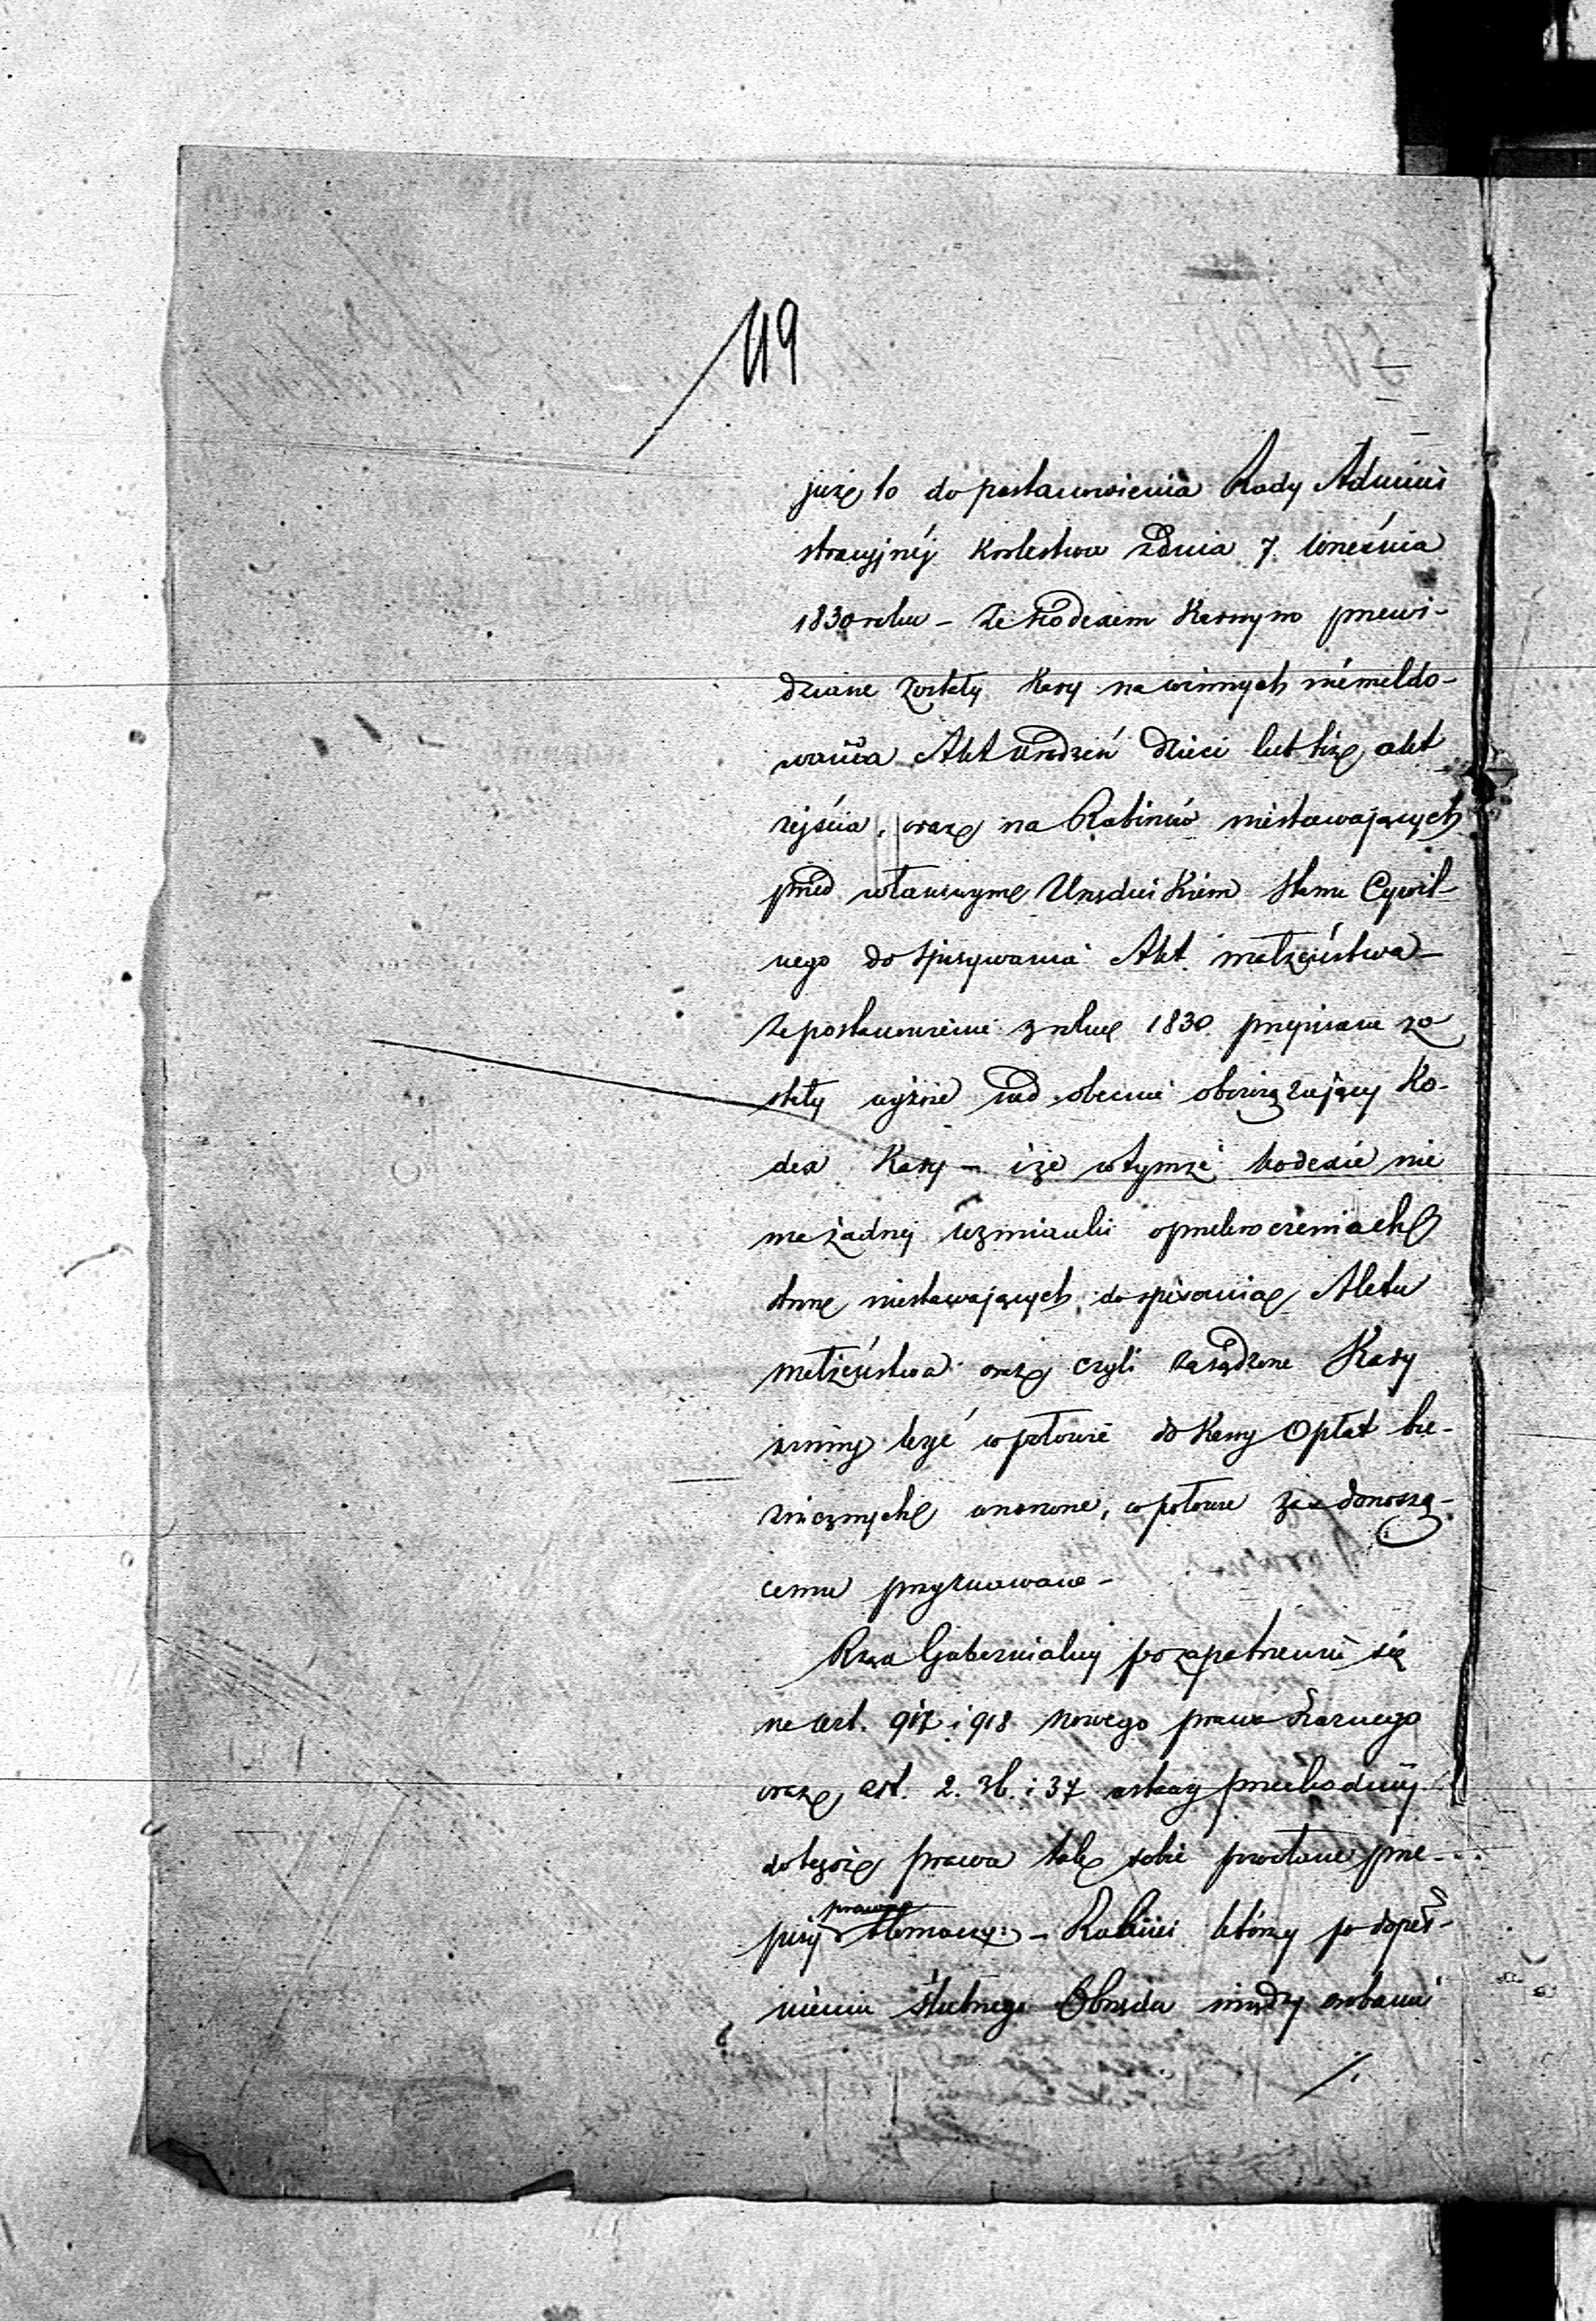 119
jużto do postanowienia Rady Admini
stracyjnéj Królestwa z dnia 7. Września
1830 roku – że kodexem Karnym przewi-
dziane zostały Kary na winnych niemeldo-
wania Akt urodzeń dzieci lub też akt
zejścia, oraz na Rabinów niestawających
przed właściwym Urzędnikiem Stanu Cywil-
nego do spisywania Akt małżeństwa –
że postanowienie z roku 1830 przepisane zo
stały wyżsie nad obecnie obowiązujący Ko-
dex Kary – i że w tymże kodexie nie
ma żadnej wzmianki o przekroczeniach
stron niestawających do spisania Aktu
małżeństwa oraz czyli zasądzone Kary
winny być w połowie do Kasy Opłat kon-
wnoszone, w połowie zaś donoszą-
cemu przyznawane –
Rząd Gubernialny po zapatrzeniu się
na art. 917 i 918 nowego prawa Karnego
oraz art. 2. 36. i 37 ustawy przechodniej
do tegoż prawa tak sobie powołane prze-
pisy prawa tłomaczy: – Rabini którzy po dopeł-
nieniu ślubnego Obrzędu między osobami
./.